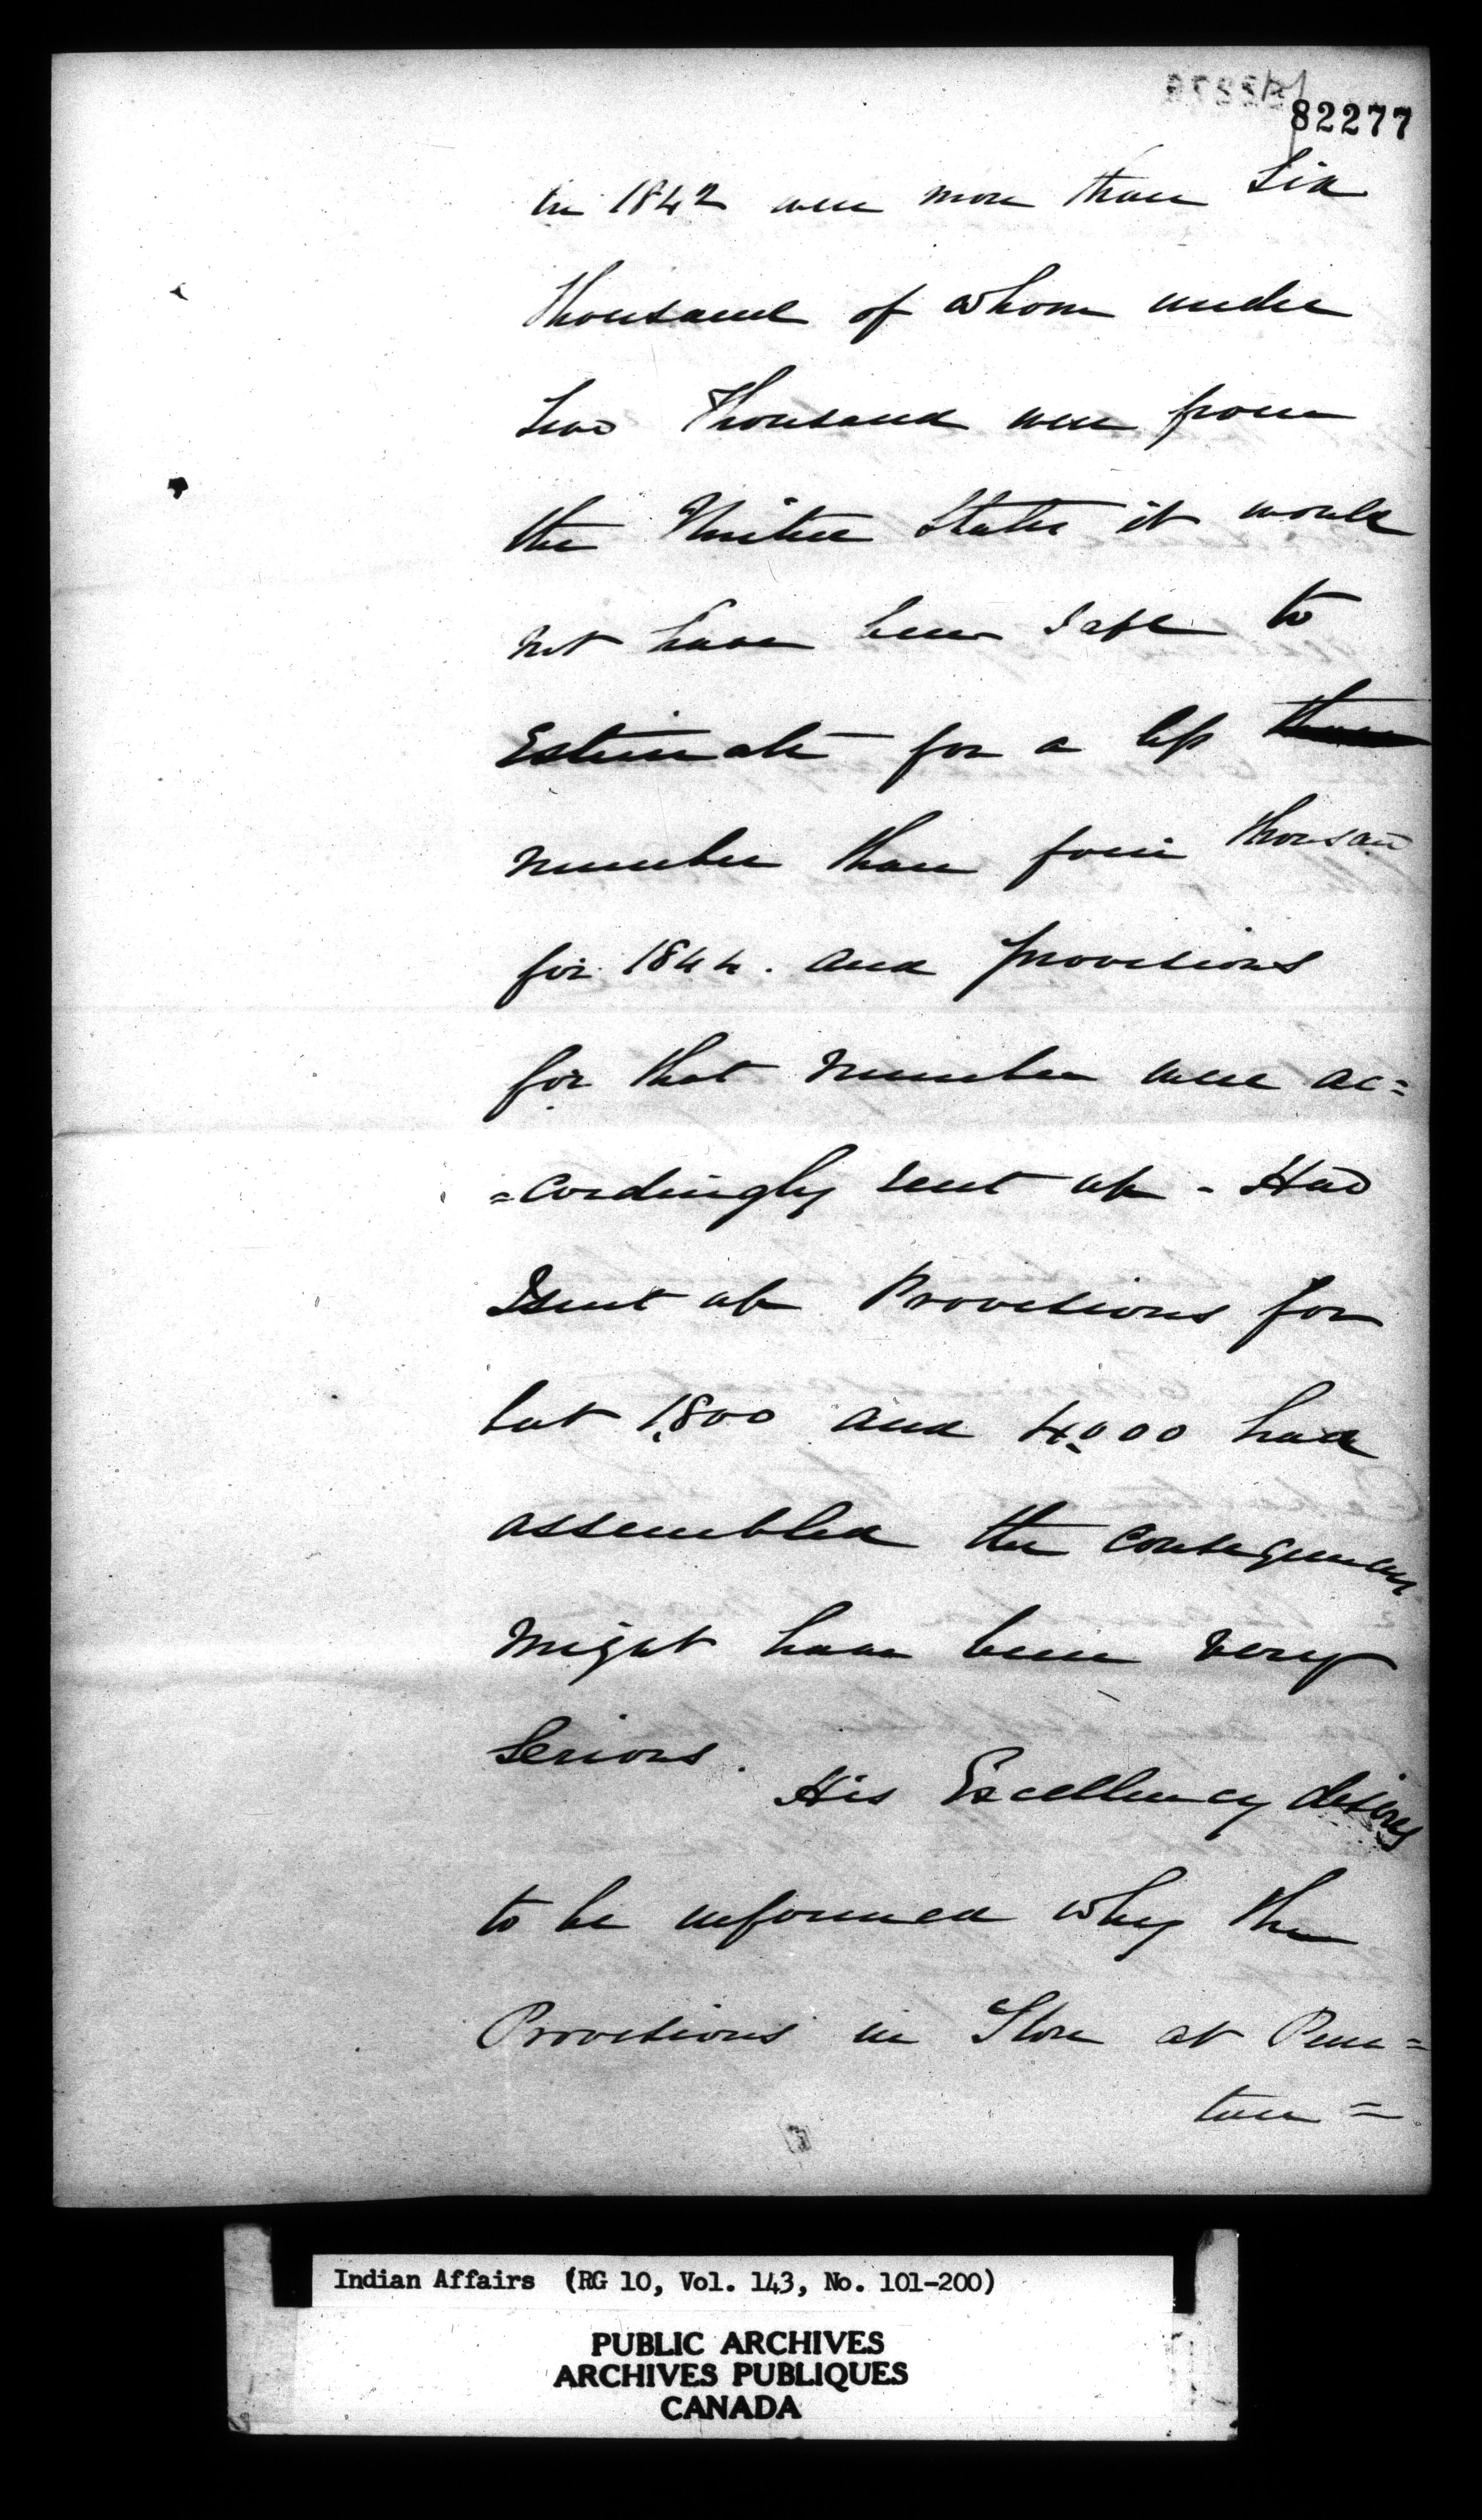 82277
in 1842 were more than Six
thousand of whom under
two thousand were from
the United States it would
not have been safe to
Estimate for a less than
number than four thousand
for 1844. and provisions
for that number were ac=
=cordingly sent up - Had
I sent up Provisions for
but 1,800 and 4,000 had
assembled the consequences
might have been very
Serious.
His Excellency desires
to be informed why the
Provisions in Store at Pene=
tan=
Indian Affairs (RG 10, Vol. 143, No. 101-200)
PUBLIC ARCHIVES
ARCHIVES PUBLIQUES
CANADA